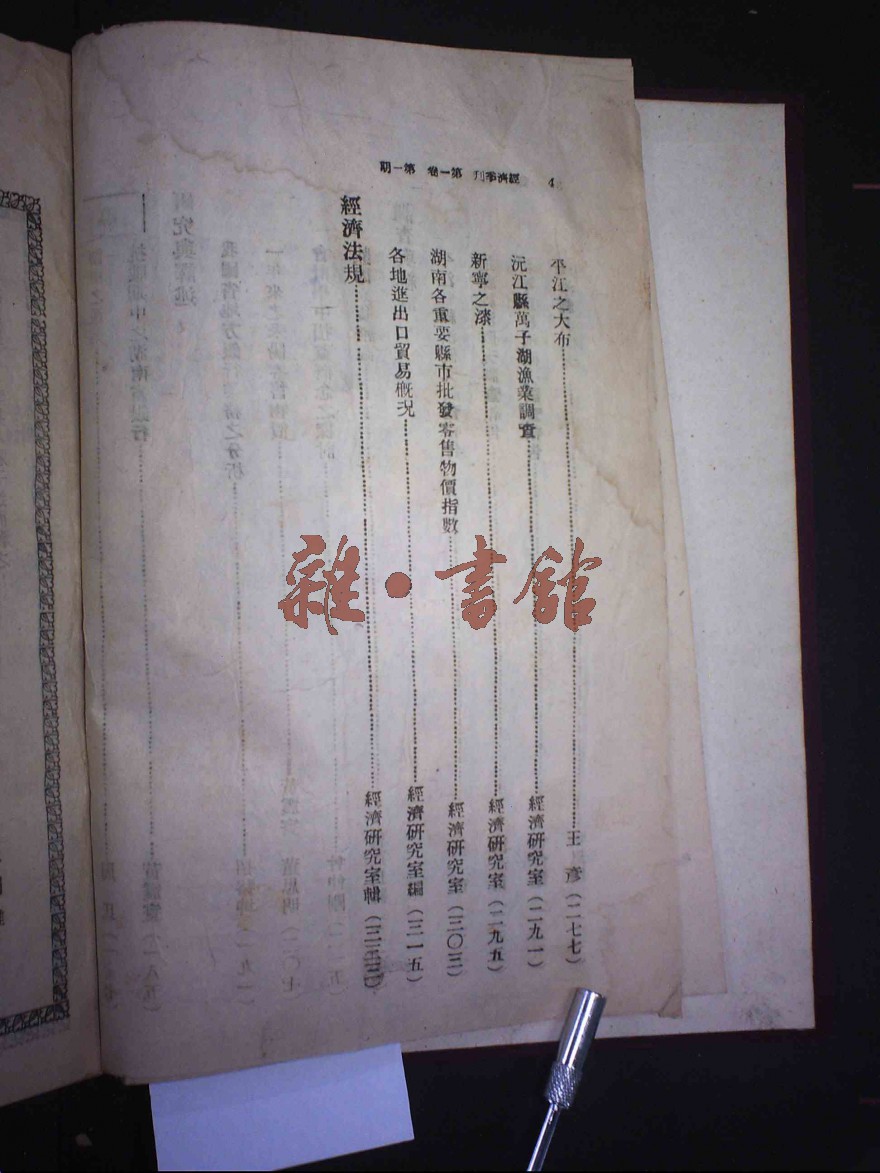 經濟季刊 第一卷 第一期 4
平江之大布……王彥(二七七)
沅江縣萬子湖漁業調查……經濟研究室(二九一)
新寧之漆……經濟研究室(二九五)
湖南各重要縣市批發零售物價指數……經濟研究室(三〇三)
各地進出口貿易概況……經濟研究室編(三一五)
經濟法規……經濟研究室輯
雜·書館